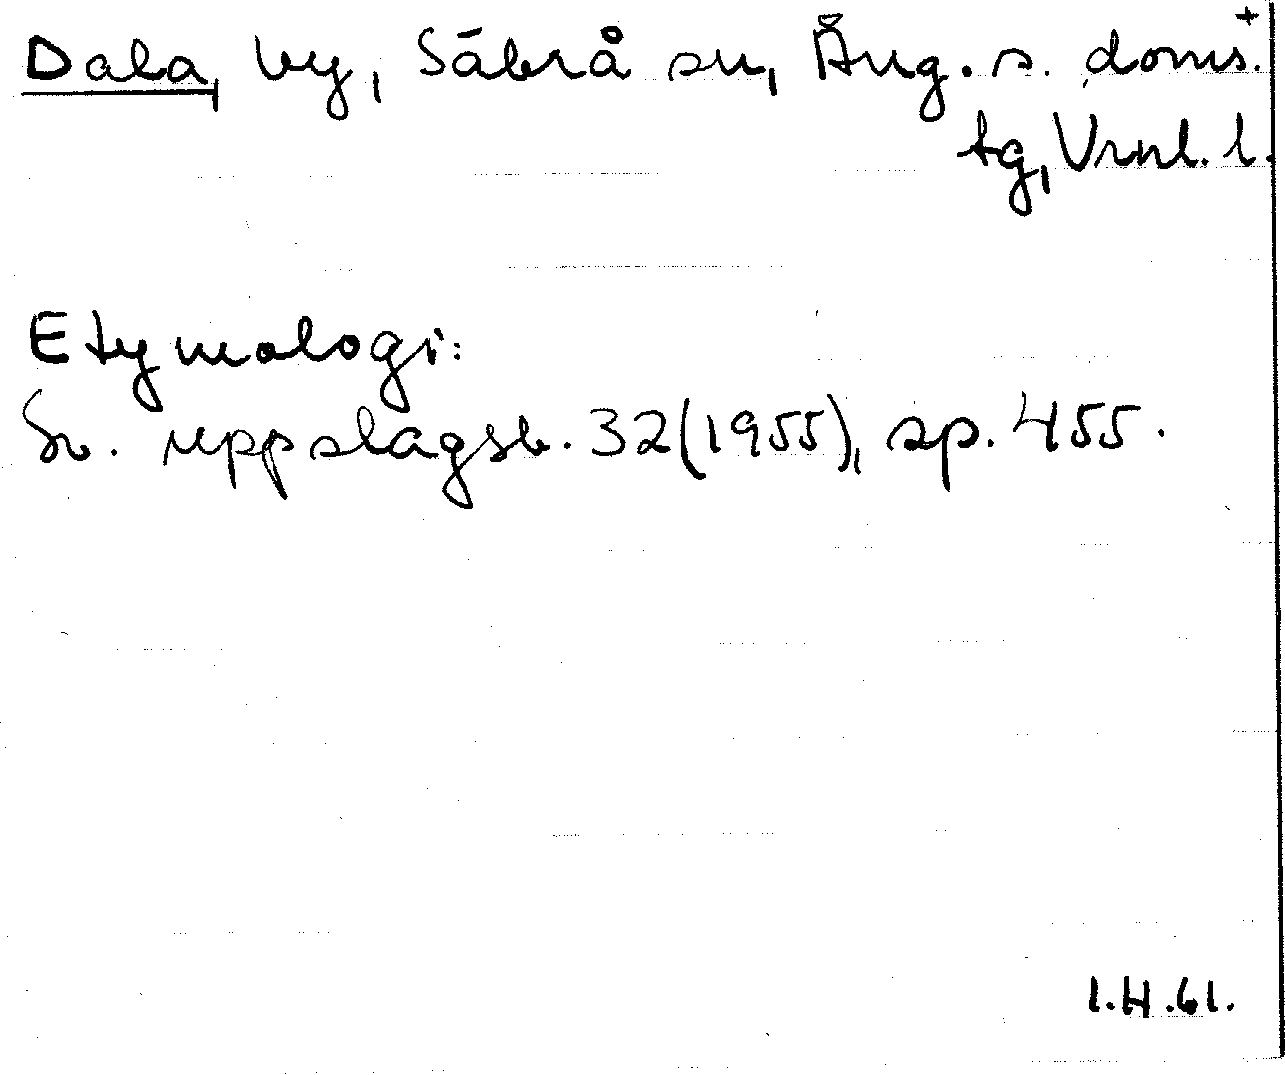 Dala, by, Säbrå sn, Ång. s. doms.+
tg, Vrnl. l.
Etymologi:
Sv. uppslagsb. 32(1955), sp. 455.
I.H.61.